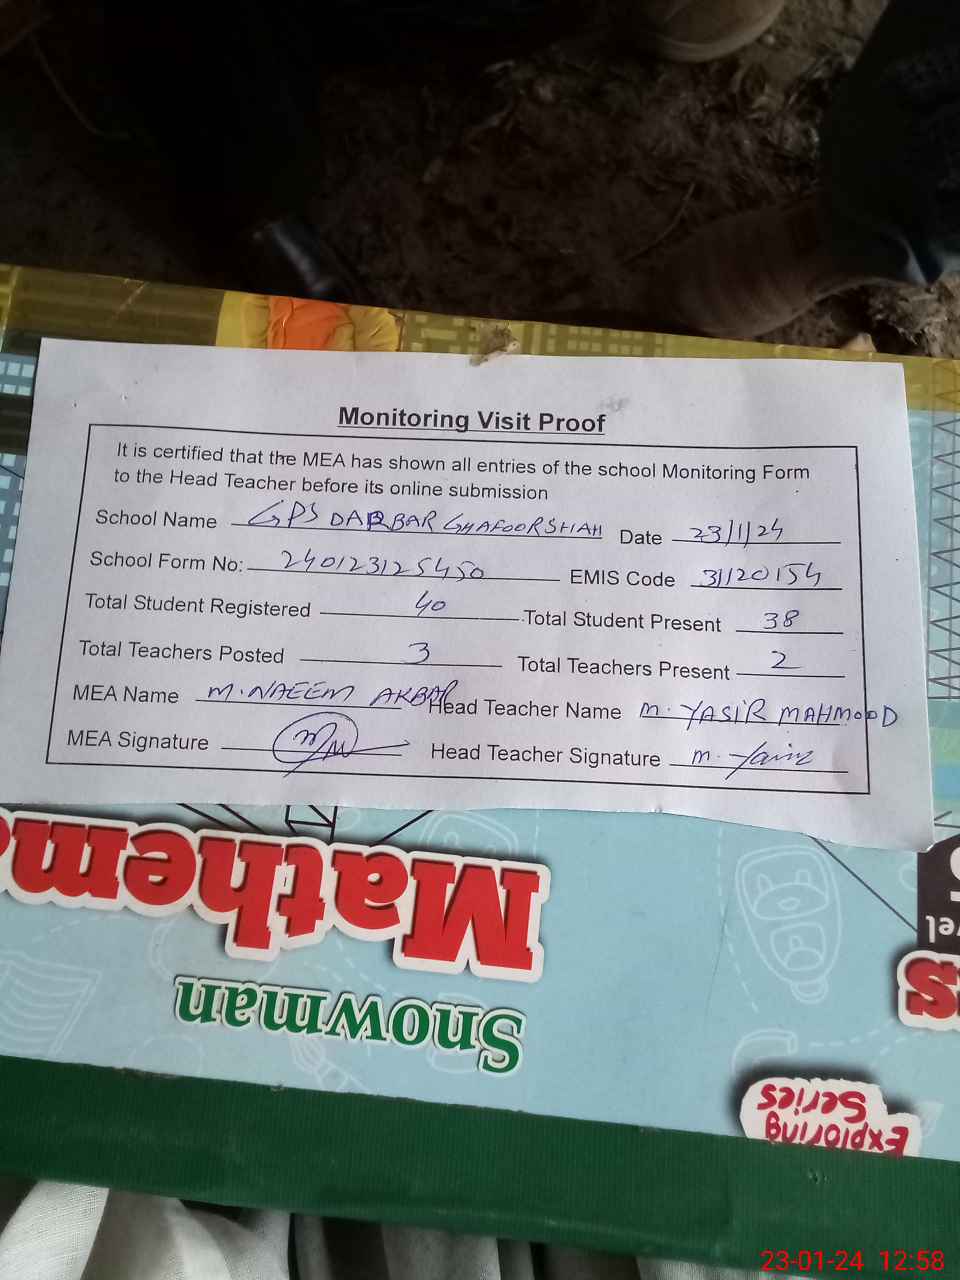 Monitoring Visit Proof
It is certified that the MEA has shown all entries of the school Monitoring Form
to the Head Teacher before its online submission
School Name GPS DARBAR GHAFOOR SHAH Date 23/1/24
School Form No: 240123125450 EMIS Code 31120154
Total Student Registered 40 Total Student Present 38
Total Teachers Posted 3 Total Teachers Present 2
MEA Name M. NAEEM AKBAR Head Teacher Name M. YASIR MAHMOOD
MEA Signature Head Teacher Signature M. Yasir
Mathem
Snowman
Exploring
Series
23-01-24 12:58